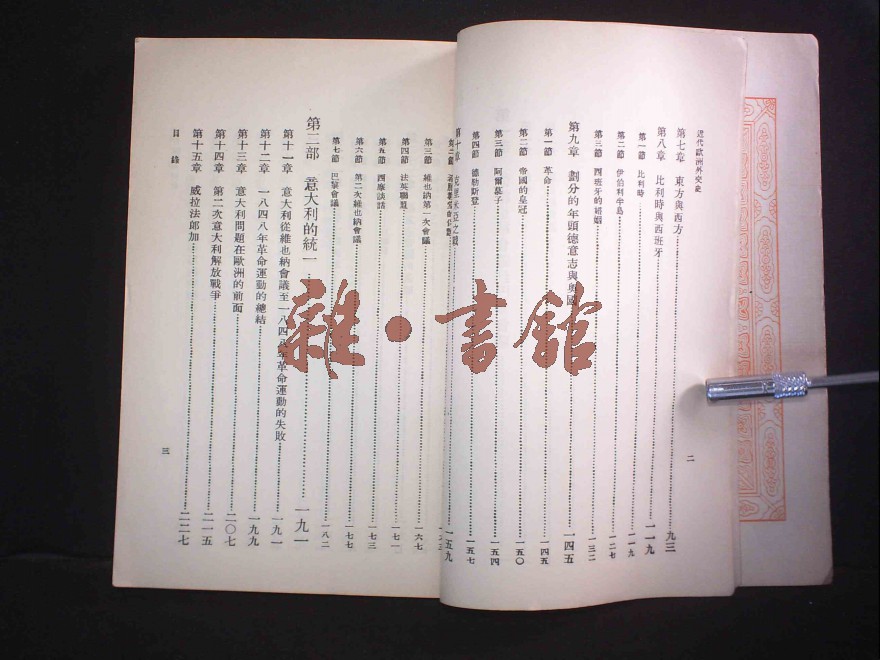 近代歐洲外交史
第七章 東方與西方 九三
第八章 比利時與西班牙 一一九
第一節 比利時 一一九
第二節 伊伯利半島 一二七
第三節 西班牙的婚姻 一三二
第九章 劃分的年頭德意志與奧國 一四五
第一節 革命 一四五
第二節 帝國的皇冠 一五〇
第三節 阿爾慕子 一五四
第四節 德勒斯登 一五七
第十章 克里米亞之戰 一五九
二
第三節 維也納第一次會議 一六七
第四節 法英聯盟 一七一
第五節 西摩談話 一七三
第六節 第二次維也納會議 一七七
第七節 巴黎會議 一八二
第三部 意大利的統一 一九一
第十一章 意大利從維也納會議至一八四八年革命運動的失敗 一九一
第十二章 一八四八年革命運動的總結 一九九
第十三章 意大利問題在歐洲的前面 二〇七
第十四章 第二次意大利解放戰爭 二一五
第十五章 威拉法郎加 二二七
目錄
三
雜·書館